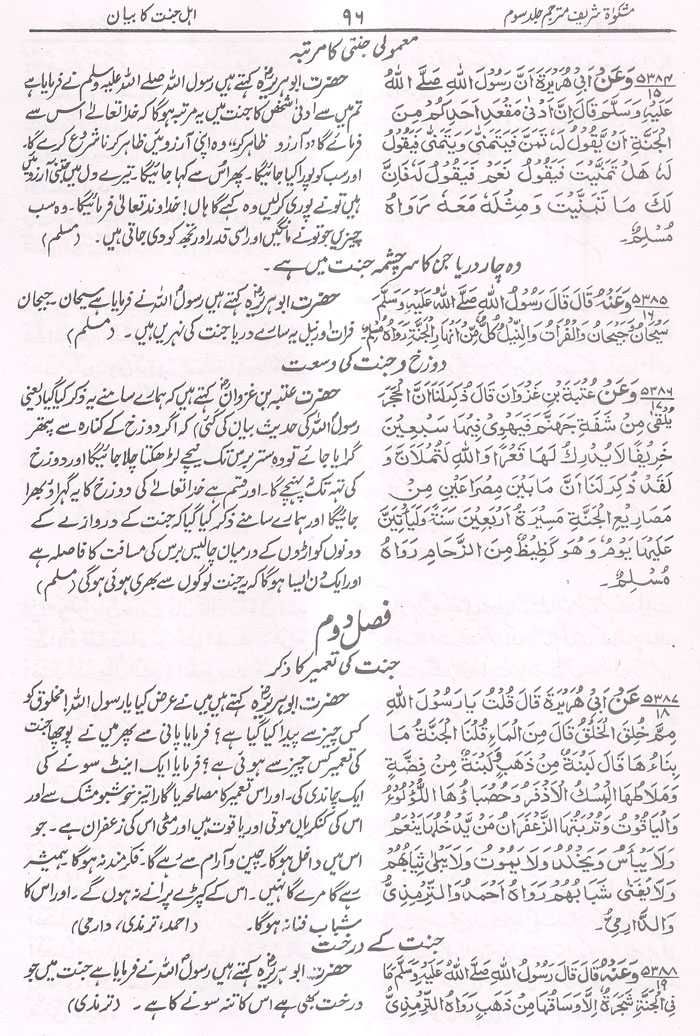 مشکوٰۃ شریف مترجم جلد سوم
۹۶
اہل جنت کا بیان
معمولی جنتی کا مرتبہ
۵۳۸۴
۱۵
وَعَنْ اَبِیْ هُرَیْرَةَ اَنَّ رَسُوْلَ اللهِ صَلَّے اللهُ
عَلَیْهِ وَسَلَّمَ قَالَ اِنَّ اَدْنٰی مَقْعَدِ اَحَدِكُمْ مِنَ
الْجَنَّةِ اَنْ یَّقُوْلَ لَهٗ تَمَنَّ فَیَتَمَنّٰی وَیَتَمَنّٰی فَیَقُوْلُ
لَهٗ هَلْ تَمَنَّیْتَ فَیَقُوْلُ نَعَمْ فَیَقُوْلُ لَهٗ فَاِنَّ
لَكَ مَا تَمَنَّیْتَ وَمِثْلَهٗ مَعَهٗ رَوَاهُ
مُسْلِمٌ۔
حضرت ابوہریرہؓ کہتے ہیں رسول اللہ صلے اللہ علیہ وسلم نے فرمایا ہے
تم میں سے ادنیٰ شخص کا جنت میں یہ مرتبہ ہوگا کہ خدا تعالےٰ اس سے
فرمائے گا آرزو ظاہر کر، وہ اپنی آرزوئیں ظاہر کرنا شروع کرے گا۔
اور سب کو پورا کیا جائیگا۔ پھر اس سے کہا جائیگا۔ تیرے دل میں جتنی آرزوئیں
ہیں تو نے پوری کرلیں وہ کہے گا ہاں! خداوند تعالیٰ فرمائیگا۔ وہ سب
چیزیں جو تو نے مانگیں اور اسی قدر اور تجھ کو دی جاتی ہیں۔ (مسلم)
وہ چار دریا جن کا سرچشمہ جنت میں ہے۔
۵۳۸۵
۱۶
وَعَنْهُ قَالَ قَالَ رَسُوْلُ اللهِ صَلَّے اللهُ عَلَیْهِ وَسَلَّمَ
سَیْحَانُ وَجَیْحَانُ وَالْفُرَاتُ وَالنِّیْلُ كُلٌّ مِّنْ اَنْهَارِ الْجَنَّةِ رَوَاهُ مُسْلِمٌ
حضرت ابوہریرہؓ کہتے ہیں رسول اللہ نے فرمایا ہے سیحان۔ جیحان
فرات اور نیل یہ سارے دریا جنت کی نہریں ہیں۔ (مسلم)
دوزخ و جنت کی وسعت
۵۳۸۶
۱۷
وَعَنْ عُتْبَةَ بْنِ غَزْوَانَ قَالَ ذُكِرَ لَنَا اَنَّ الْحَجَرَ
یُلْقٰی مِنْ شَفَةِ جَهَنَّمَ فَیَهْوِیْ فِیْهَا سَبْعِیْنَ
خَرِیْفًا لَّا یُدْرِكُ لَهَا قَعْرًا وَاللهِ لَتُمْلَأَنَّ وَ
لَقَدْ ذُكِرَ لَنَا اَنَّ مَا بَیْنَ مِصْرَاعَیْنِ مِنْ
مَصَارِیْعِ الْجَنَّةِ مَسِیْرَةُ اَرْبَعِیْنَ سَنَةً وَلَیَأْتِیَنَّ
عَلَیْهَا یَوْمٌ وَهُوَ كَظِیْظٌ مِنَ الزِّحَامِ رَوَاهُ
مُسْلِمٌ۔
حضرت عتبہ بن غزوانؓ کہتے ہیں کہ ہمارے سامنے یہ ذکر کیا گیا (یعنی
رسول اللہ کی حدیث بیان کی گئی) کہ اگر دوزخ کے کنارہ سے پتھر
گرایا جائے تو وہ ستر برس تک نیچے لڑھکتا چلا جائیگا اور دوزخ
کی تہہ تک نہ پہنچے گا۔ اور قسم ہے خدا تعالےٰ کی دوزخ کا یہ گہراؤ بھرا
جائیگا اور ہمارے سامنے ذکر کیا گیا کہ جنت کے دروازے کے
دونوں کواڑوں کے درمیان چالیس برس کی مسافت کا فاصلہ ہے
اور ایک دن ایسا ہوگا کہ یہ جنت لوگوں سے بھری ہوئی ہوگی (مسلم)
فصل دوم
جنت کی تعمیر کا ذکر
۵۳۸۷
۱۸
عَنْ اَبِیْ هُرَیْرَةَ قَالَ قُلْتُ یَا رَسُوْلَ اللهِ
مِمَّ خُلِقَ الْخَلْقُ قَالَ مِنَ الْمَاءِ قُلْنَا الْجَنَّةُ مَا
بِنَاءُهَا قَالَ لَبِنَةٌ مِّنْ ذَهَبٍ وَّلَبِنَةٌ مِّنْ فِضَّةٍ
وَمِلَاطُهَا الْمِسْكُ الْاَذْفَرُ وَحَصْبَاؤُهَا اللُّؤْلُؤُ
وَالْیَاقُوْتُ وَتُرْبَتُهَا الزَّعْفَرَانُ مَنْ یَّدْخُلُهَا یَنْعَمُ
وَلَا یَبْأَسُ وَیَخْلُدُ وَلَا یَمُوْتُ وَلَا یَبْلٰی ثِیَابُهُمْ
وَلَا یَفْنٰی شَبَابُهُمْ رَوَاهُ اَحْمَدُ وَالتِّرْمِذِیُّ
وَالدَّارِمِیُّ۔
حضرت ابوہریرہؓ کہتے ہیں میں نے عرض کیا یا رسول اللہ! مخلوق کو
کس چیز سے پیدا کیا گیا ہے؟ فرمایا پانی سے پھر میں نے پوچھا جنت
کی تعمیر کس چیز سے ہوئی ہے؟ فرمایا ایک اینٹ سونے کی
ایک چاندی کی۔ اور اس تعمیر کا مصالحہ یا گارا تیز خوشبو مشک ہے اور
اس کی کنکریاں موتی اور یاقوت ہیں اور مٹی اس کی زعفران ہے۔ جو
اس میں داخل ہوگا۔ چین و آرام سے رہے گا۔ فکر مند نہ ہوگا۔ ہمیشہ
رہے گا مرے گا نہیں۔ اس کے کپڑے پرانے نہ ہوں گے۔ اور اس کا
شباب فنا نہ ہوگا۔ (احمد، ترمذی، دارمی)
جنت کے درخت
۵۳۸۸
۱۹
وَعَنْهُ قَالَ قَالَ رَسُوْلُ اللهِ صَلَّے اللهُ عَلَیْهِ وَسَلَّمَ مَا
فِی الْجَنَّةِ شَجَرَةٌ اِلَّا وَسَاقُهَا مِنْ ذَهَبٍ رَوَاهُ التِّرْمِذِیُّ
حضرت ابوہریرہؓ کہتے ہیں رسول اللہ نے فرمایا ہے جنت میں جو
درخت بھی ہے اس کا تنہ سونے کا ہے۔ (ترمذی)